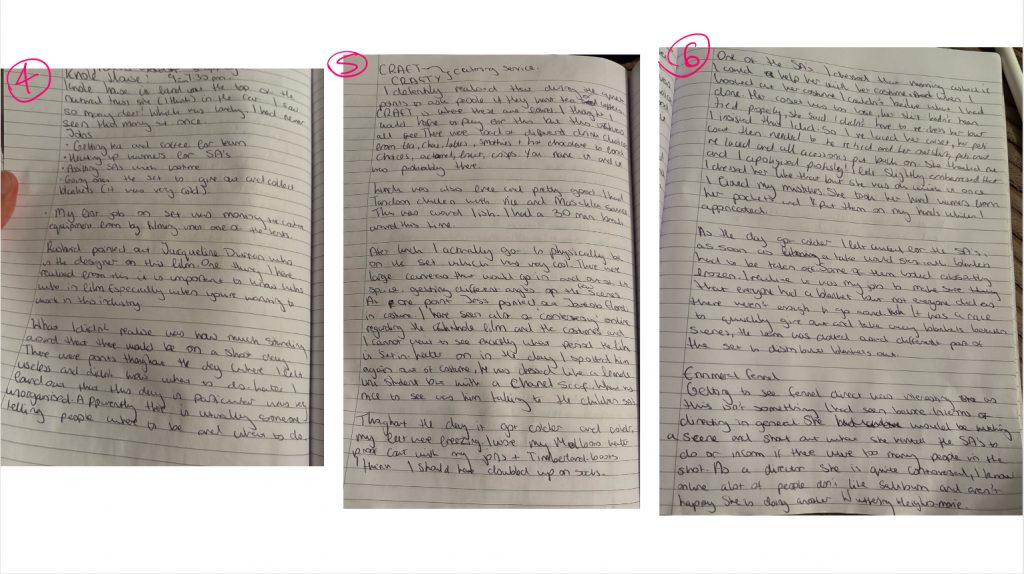 4
Knole House: 9-7:30 pm.
Knole house is land was the top of the
national trust site (I think) in the car I saw
so many deer which was lovely. I had never
seen that many at once.
Jobs
• Getting tea and coffee for team
• Heating up warmers for SA's
• Assisting SA's with costume
• Going onto the set to give out and collect
blankets (it was very cold)
• My first job on set was moving the
equipment from by filming was one of the tents.
Richard pointed out Jacqueline Durran who
is the designer on this film. One thing I have
realised from this is it is important to know who
who in film especially when you're wanning to
work in this industry.
What I didn't realise was how much standing
around that there would be on a shoot day.
There were points throughout the day where I felt
useless and didn't know what to do. Later I
found out that this day in particular was very
unorganised. Apparently there is usually someone
telling people where to be and what to do.
5
CRAFT
CRAFTY Catering service.
I definitely realised that during the
points to ask people if they want tea or coffee
CRAFT is where these are found. I thought I
would have to pay for this but these
all free. There were tonnes of different drinks choices
from tea, chai, lattes, smoothies + hot chocolate to
choices, actamel, fruit, crisps. You name it and it
was probably there.
Lunch was also free and pretty good I had
Tandoori chicken with rice and
This was around 1ish. I had a 30 min break
around this time.
After lunch I actually got to physically be
on the set which was very cool. There were
large cameras that would go in and out of the
space getting different angles of the scenes
At one point Jess pointed out Jacob Elordi
in costume. I have seen alot of controversy online
regarding the film and the costumes and
I cannot wait to see exactly what period the film
is set in. Later on in the day I spotted him
again out of costume, he was dressed like a
uni student but with a Chanel scarf. What was
nice to see was him talking to the children SA's.
Throughout the day it got colder and colder,
my feet were freezing. I wore my
proof coat with my pjs + Timberland boots.
I think I should have doubled up on socks.
6
One of the SA's I dressed that morning asked if
I could help her with her costume when I
looked at her costume I couldn't believe what I had
done. Her corset was too loose, her skirt hadn't been
tied properly, she said I didn't have to re dress her but
I insisted that I did. So I re laced her corset, her petti
coat then needed to be re tied and her
re laced and all accessories put back on. She thanked me
and I apologised profusely. I felt slightly embarrassed that I
dressed her like that but she was at ease once
I fixed my mistakes. She took her hand warmers from
her pockets and put them on my hands which I
appreciated.
As the day got colder I felt awful for the SA's,
as soon as a take would finish with
had to be taken off some of them looked absolutely
frozen. I realise it was my job to make sure things
that everyone had a blanket but not everyone did as
there weren't enough to go around. It was a race
to quickly give out and take away blankets between
scenes, the team was dotted around different parts of
the set to distribute blankets out.
Emmerald Fennel
Getting to see Fennel direct was interesting as
this isn't something I had seen before in terms of
directing in general. She would be watching
a scene and shout out what she wanted the SA's to
do or inform if there were too many people in the
shot. As a director she is quite controversial, I know
online alot of people don't like Saltburn and aren't
happy she is doing another Wuthering Heights movie.